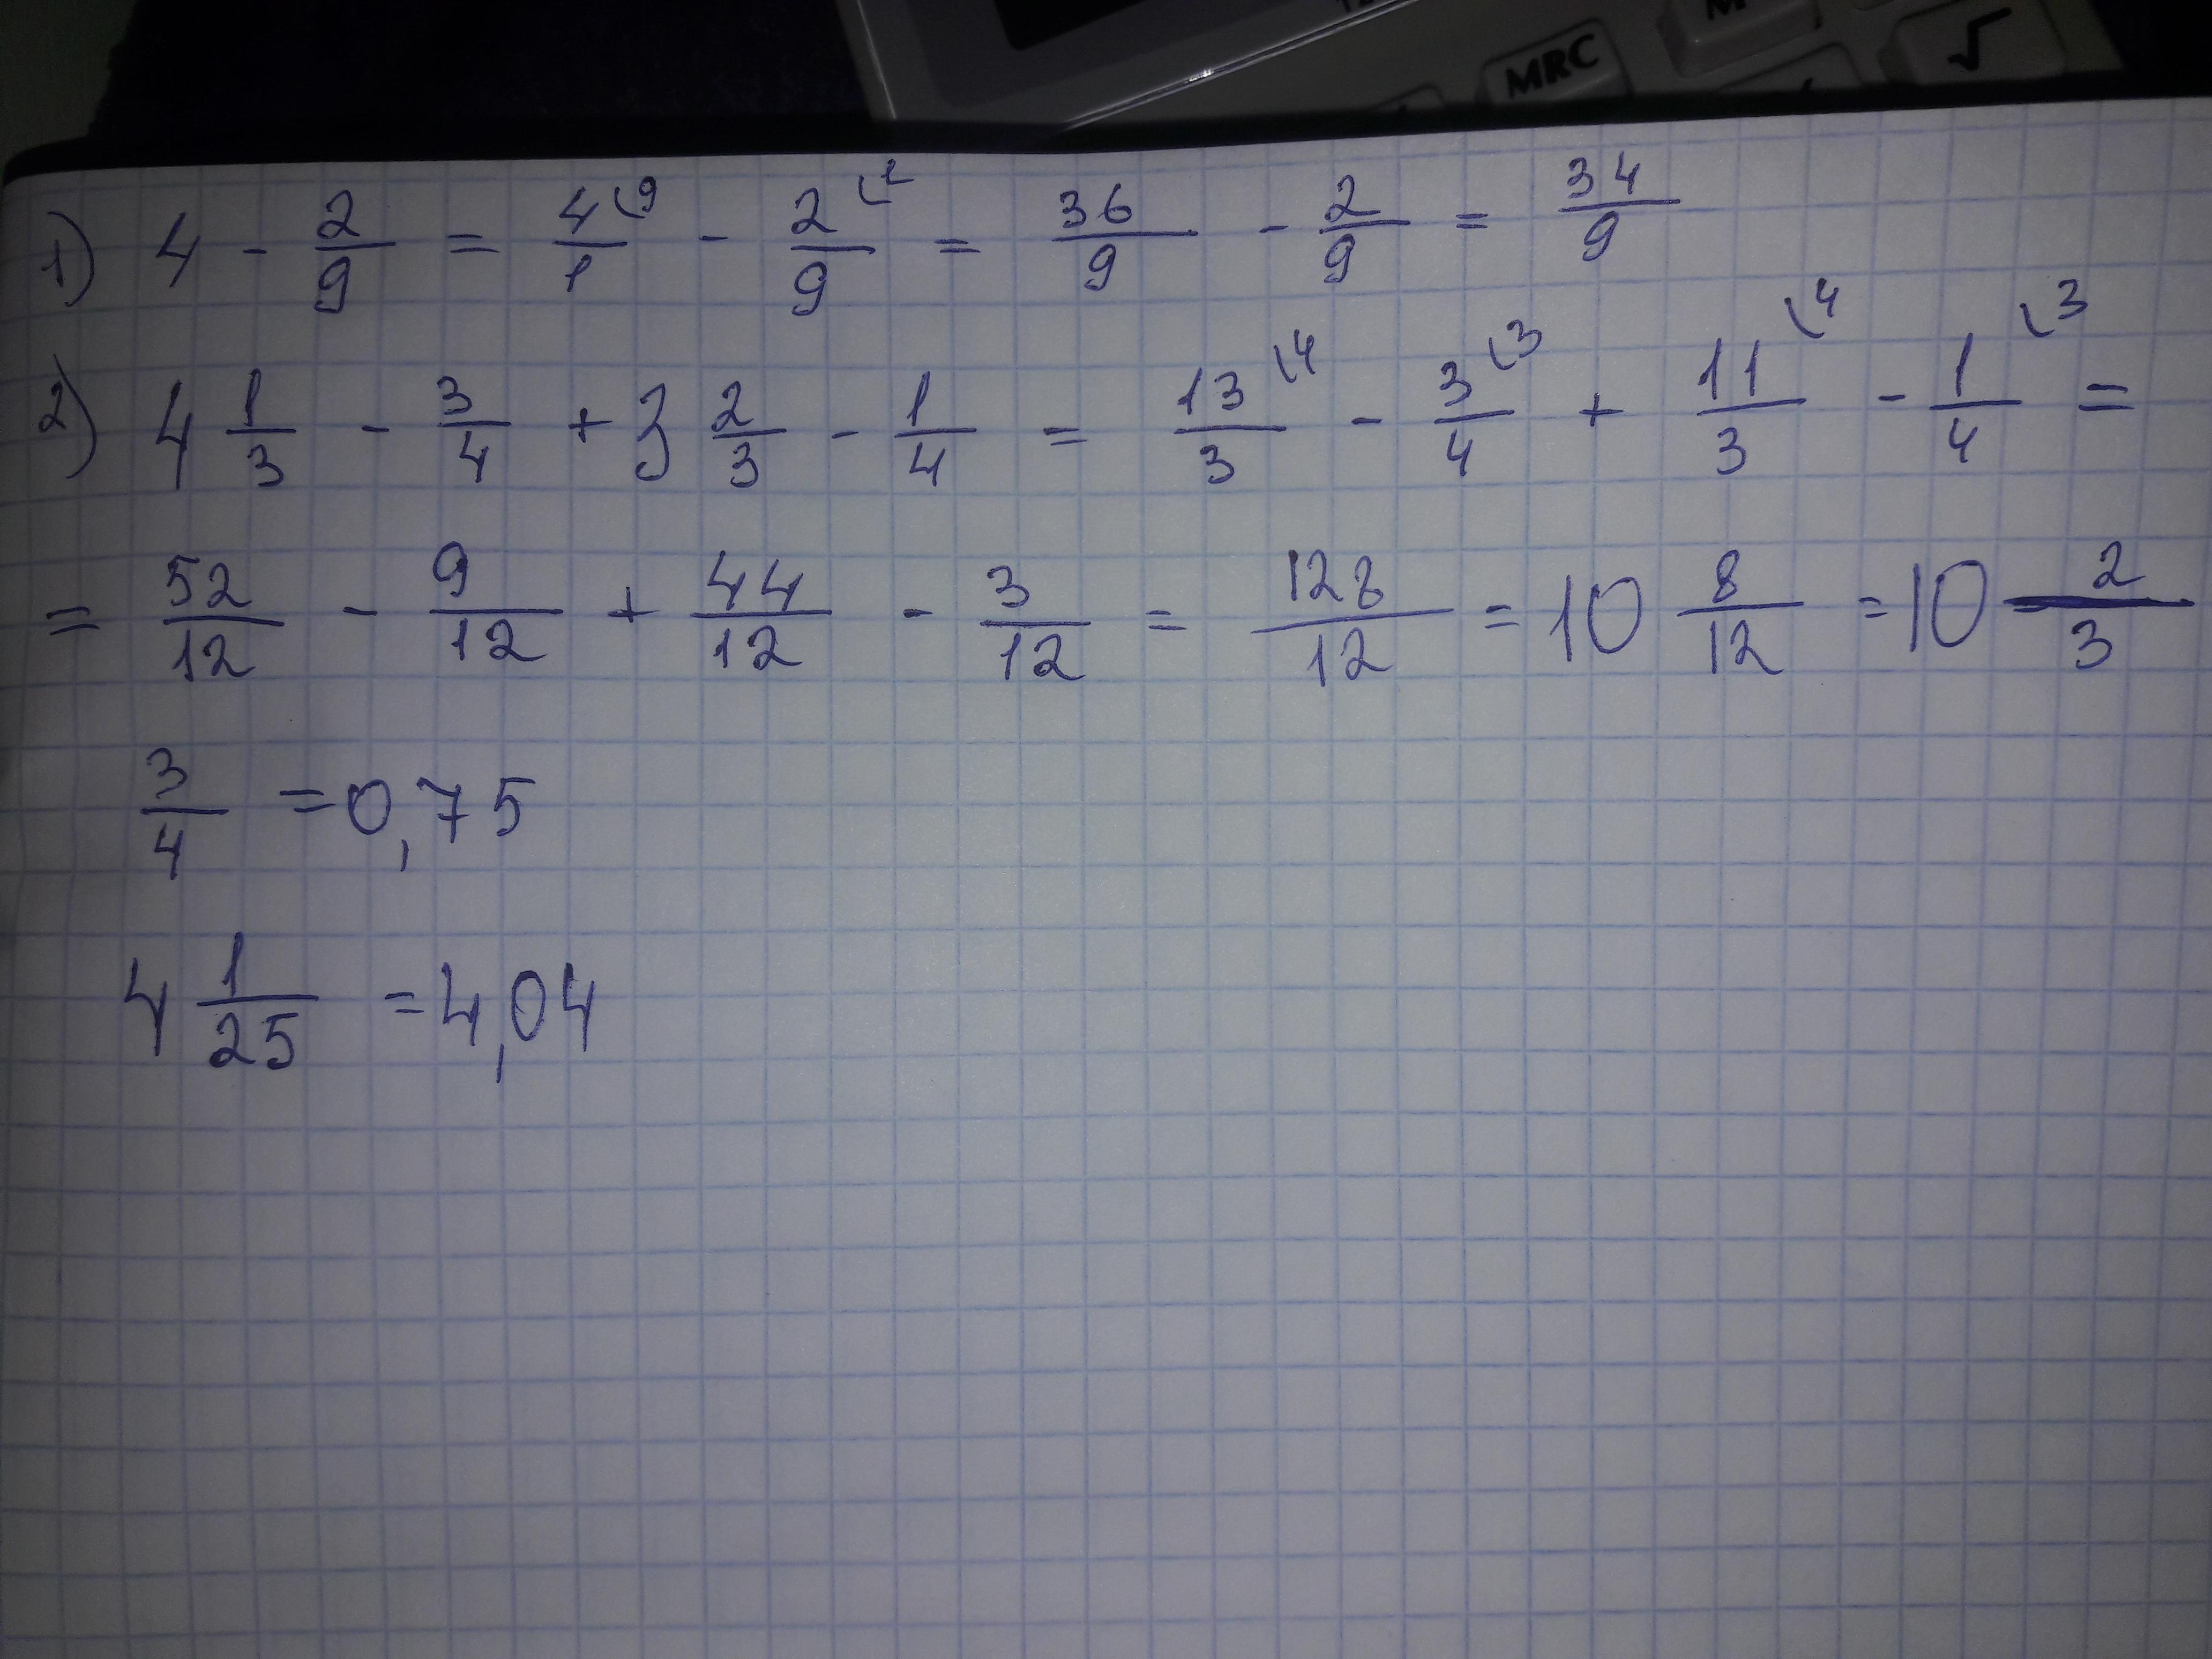 MRC
√
1) 4 - 2/9 = 4/1 ⁽⁹ - 2/9 ⁽¹ = 36/9 - 2/9 = 34/9
2) 4 1/3 - 3/4 + 3 2/3 - 1/4 = 13/3 ⁽⁴ - 3/4 ⁽³ + 11/3 ⁽⁴ - 1/4 ⁽³ =
= 52/12 - 9/12 + 44/12 - 3/12 = 128/12 = 10 8/12 = 10 2/3
3/4 = 0,75
4 1/25 = 4,04